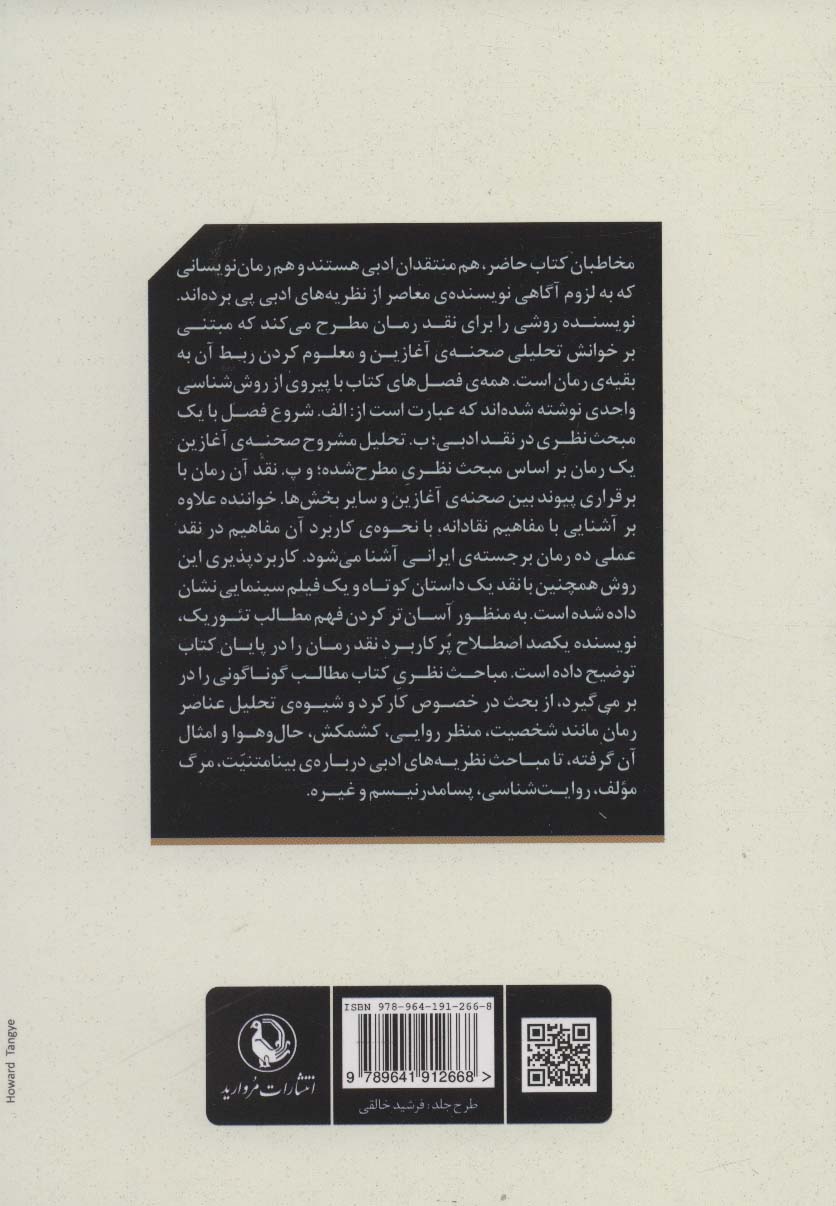 مخاطبان کتاب حاضر، هم منتقدان ادبی هستند و هم رمان‌نویسانی
که به لزوم آگاهی نویسنده‌ی معاصر از نظریه‌های ادبی پی برده‌اند.
نویسنده روشی را برای نقد رمان مطرح می‌کند که مبتنی
بر خوانش تحلیلی صحنه‌ی آغازین و معلوم کردن ربط آن به
بقیه‌ی رمان است. همه‌ی فصل‌های کتاب با پیروی از روش‌شناسی
واحدی نوشته شده‌اند که عبارت است از: الف. شروع فصل با یک
مبحث نظری در نقد ادبی؛ ب. تحلیل مشروح صحنه‌ی آغازین
یک رمان بر اساس مبحث نظریِ مطرح‌شده؛ و پ. نقد آن رمان با
برقراری پیوند بین صحنه‌ی آغازین و سایر بخش‌ها. خواننده علاوه
بر آشنایی با مفاهیم نقادانه، با نحوه‌ی کاربرد آن مفاهیم در نقد
عملی ده رمان برجسته‌ی ایرانی آشنا می‌شود. کاربردپذیری این
روش همچنین با نقد یک داستان کوتاه و یک فیلم سینمایی نشان
داده شده است. به منظور آسان‌تر کردن فهم مطالب تئوریک،
نویسنده یکصد اصطلاح پُرکاربرد نقد رمان را در پایان کتاب
توضیح داده است. مباحث نظریِ کتاب مطالب گوناگونی را در
بر می‌گیرد، از بحث در خصوص کارکرد و شیوه‌ی تحلیل عناصر
رمان مانند شخصیت، منظر روایی، کشمکش، حال‌وهوا و امثال
آن گرفته، تا مباحث نظریه‌های ادبی درباره‌ی بینامتنیّت، مرگ
مؤلف، روایت‌شناسی، پسامدرنیسم و غیره.
ISBN 978-964-191-266-8
9 789641 912668 >
طرح جلد: فرشید خالقی
انتشارات مُروارید
Howard Tangye